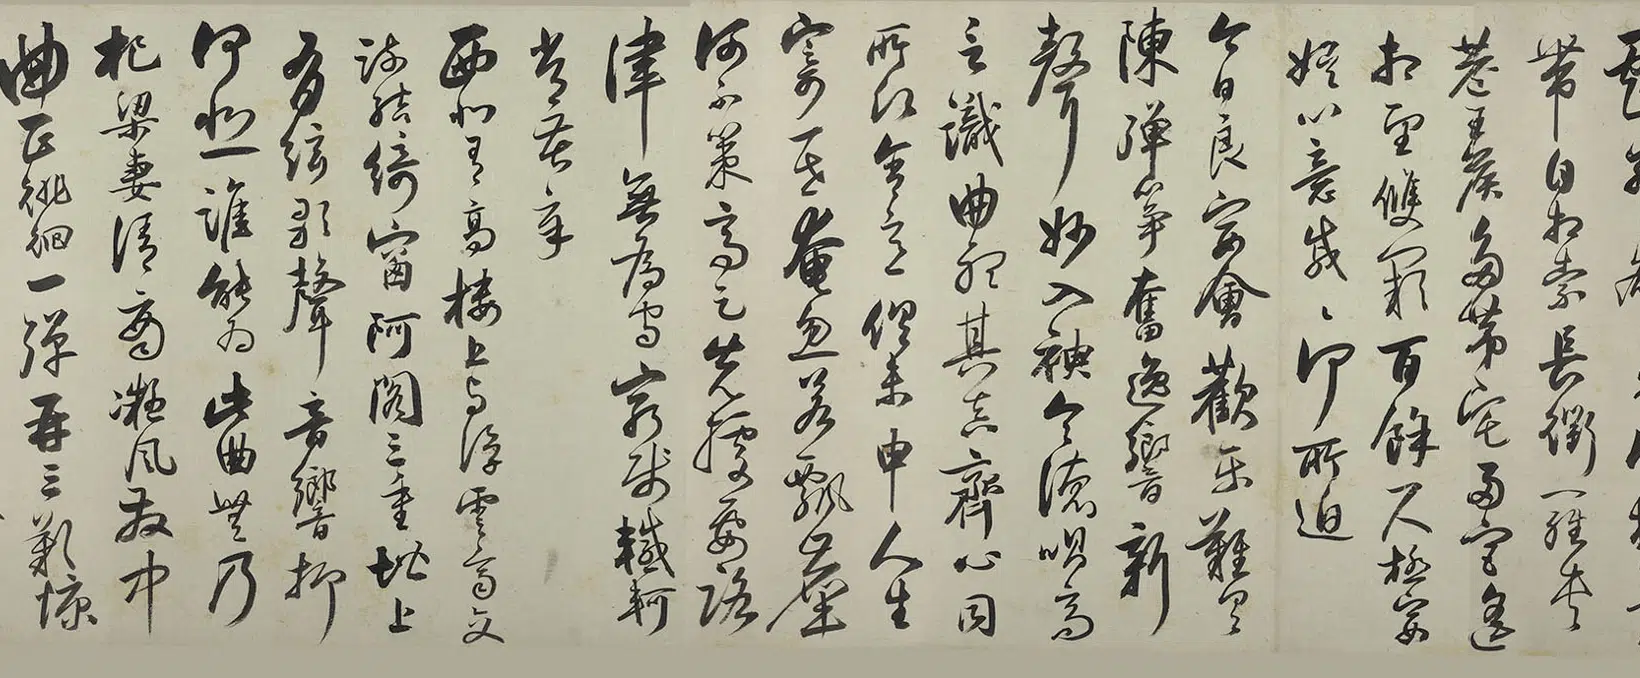 帶自相索長衢一羅夾
巷王侯多第宅兩宮遙
相望雙闕百餘尺極宴
娛心意戚〻何所迫
今日良宴會歡樂難具
陳彈箏奮逸響新
聲妙入神令德唱高
言識曲聽其真齊心同
所願含意俱未申人生
寄一世奄忽若飄塵
何不策高足先據要路
津無為守窮賤轗軻
常苦辛
西北有高樓上與浮雲齊交
疏結綺窗阿閣三重堦上
有絃歌聲音響抑
何悲一誰能為此曲無乃
杞梁妻清商凝風發中
曲正徘徊一彈再三歎慷